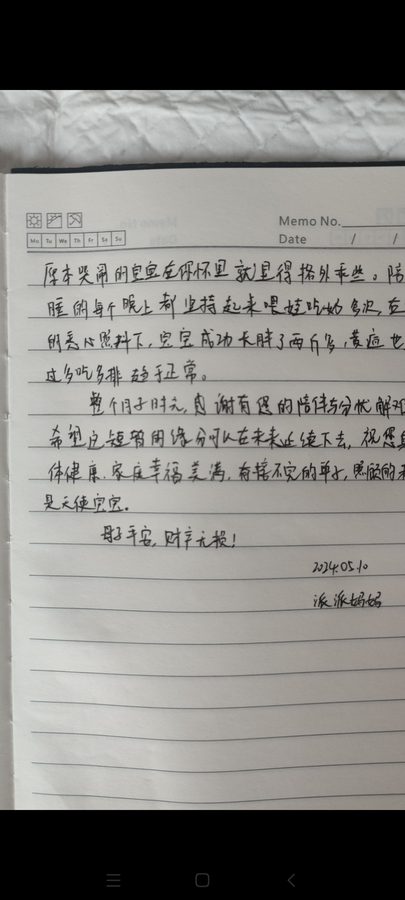 Memo No.
Mo Tu We Th Fr Sa Su
Date / /
原本哭闹的宝宝在你怀里就显得格外乖些。陪
睡的每个晚上都坚持起来喂娃吃奶多次,在
的悉心照料下,宝宝成功长胖了两斤多,黄疸也
过多吃多排趋于正常。
整个月子时光,感谢有您的陪伴与分忧解
希望这短暂的缘分可以在未来延续下去,祝您身
体健康、家庭幸福美满,有接不完的单子,照顾的
是天使宝宝。
母子平安,财产无损!
2024.05.10
派派妈妈